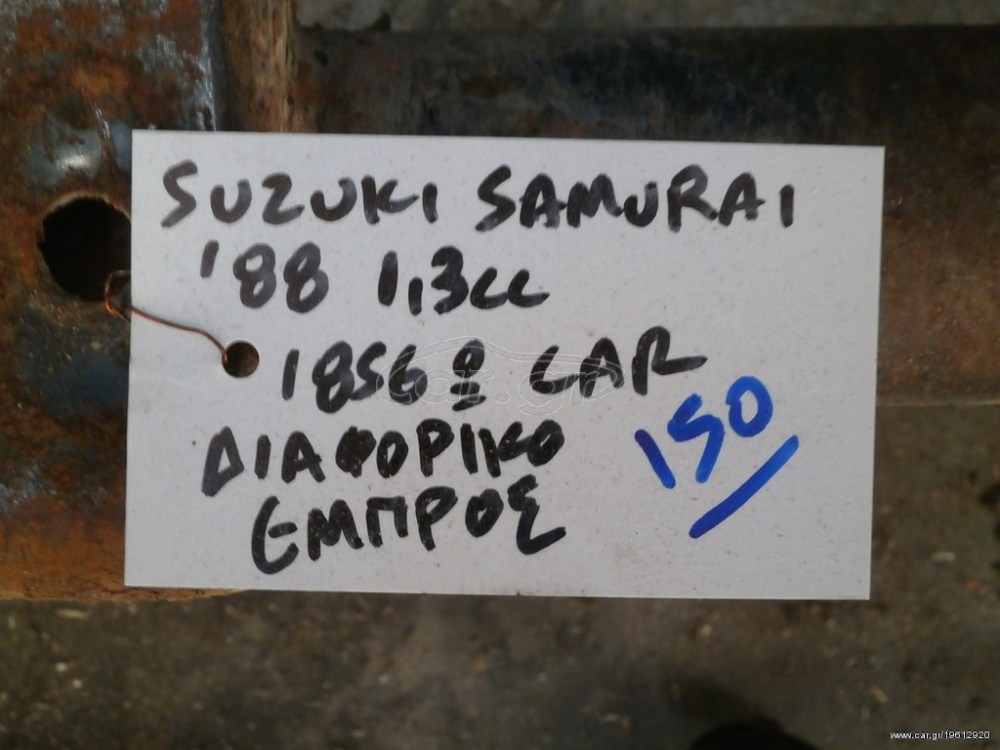 SUZUKI SAMURAI
'88 1,3cc
1856 CAR
ΔΙΑΦΟΡΙΚΟ
ΕΜΠΡΟΣ
150
www.car.gr/19612920